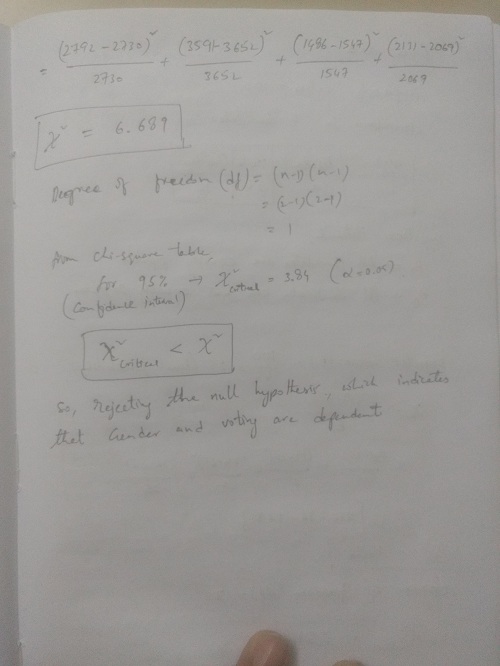 = (2792-2730)²/2730 + (3591-3652)²/3652 + (1486-1547)²/1547 + (2131-2069)²/2069
χ² = 6.689
Degree of freedom (df) = (n-1)(n-1)
= (2-1)(2-1)
= 1
From chi-square table,
For 95% → χ²critical = 3.84 (α=0.05)
(Confidence interval)
χ²critical < χ²
So, rejecting the null hypothesis, which indicates
that Gender and voting are dependent